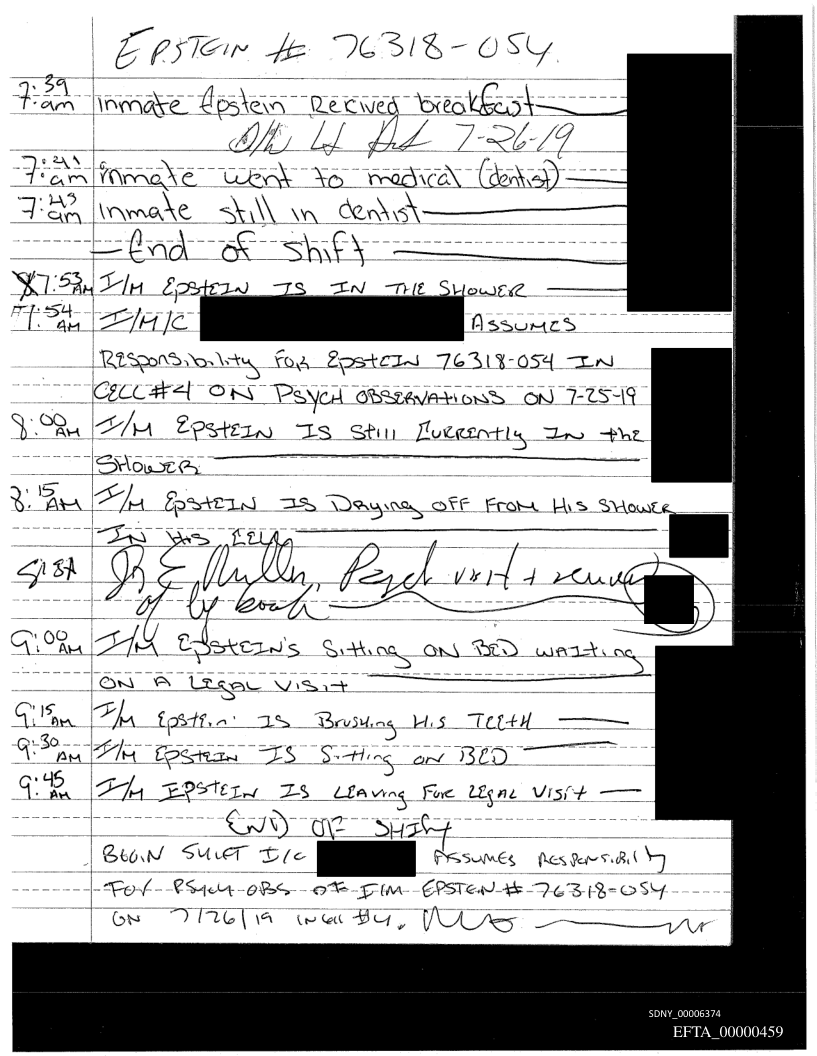 EPSTEIN # 76318-054
7:39 am inmate Epstein Recived breakfast
7-26-19
7:41 am inmate went to medical (dentist)
7:43 am inmate still in dentist
End of shift
7:53 AM I/M EPSTEIN IS IN THE SHOWER
7:54 AM I/M/C ASSUMES
RESPONSIBILITY FOR EPSTEIN 76318-054 IN
CELL #4 ON PSYCH OBSERVATIONS ON 7-25-19
8:00 AM I/M EPSTEIN IS STILL CURRENTLY IN the
SHOWER
8:15 AM I/M EPSTEIN IS DRYING OFF FROM HIS SHOWER
IN HIS CELL
Psych visit +
of log book
9:00 AM I/M EPSTEIN'S SITTING ON BED WAITING
ON A LEGAL VISIT
9:15 AM I/M Epstein IS Brushing HIS TEETH
9:30 AM I/M EPSTEIN IS Sitting ON BED
9:45 AM I/M EPSTEIN IS LEAVING FOR LEGAL VISIT
END OF SHIFT
BEGIN SHIFT I/C ASSUMES RESPONSIBILITY
FOR PSYCH OBS OF I/M EPSTEIN # 76318-054
ON 7/26/19 IN CELL #4.
SDNY_00006374
EFTA_00000459